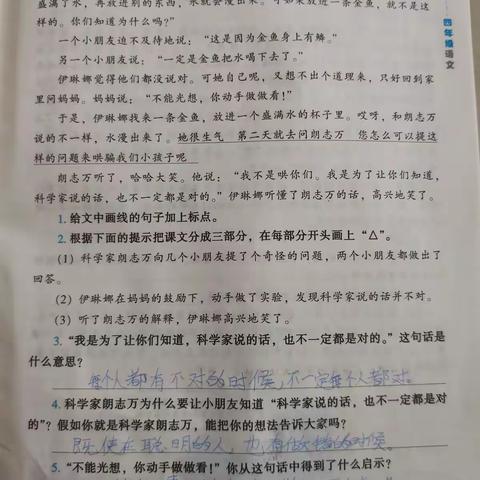 盛满了水，再放进别的东西，水就会漫出来。可如果放进一条金鱼，就不是这
样的。你们知道为什么吗？”
一个小朋友迫不及待地说：“这是因为金鱼身上有鳞。”
另一个小朋友说：“一定是金鱼把水喝下去了。”
伊琳娜觉得他们都没说对。可她自己呢，又想不出个道理来，只好回到家
里问妈妈。妈妈说：“不能光想，你动手做做看！”
于是，伊琳娜找来一条金鱼，放进一个盛满水的杯子里。哎呀，和朗志万
说的不一样，水漫出来了。她很生气 第二天就去问朗志万 您怎么可以提这
样的问题来哄骗我们小孩子呢
朗志万听了，哈哈大笑。他说：“我不是哄你们。我是为了让你们知道，
科学家说的话，也不一定都是对的。”伊琳娜听懂了朗志万的话，高兴地笑了。
1.给文中画线的句子加上标点。
2.根据下面的提示把课文分成三部分，在每部分开头画上“△”。
(1) 科学家朗志万向几个小朋友提了个奇怪的问题，两个小朋友都做出了
回答。
(2) 伊琳娜在妈妈的鼓励下，动手做了实验，发现科学家说的话并不对。
(3) 听了朗志万的解释，伊琳娜高兴地笑了。
3.“我是为了让你们知道，科学家说的话，也不一定都是对的。”这句话是
什么意思？
每个人都有不对的时候，不一定每个人都对.
4.科学家朗志万为什么要让小朋友知道“科学家说的话，也不一定都是对
的”？假如你就是科学家朗志万，能把你的想法告诉大家吗？
既使在聪明的人，也有做错的时候.
5.“不能光想，你动手做做看！”你从这句话中得到了什么启示？
四年级语文